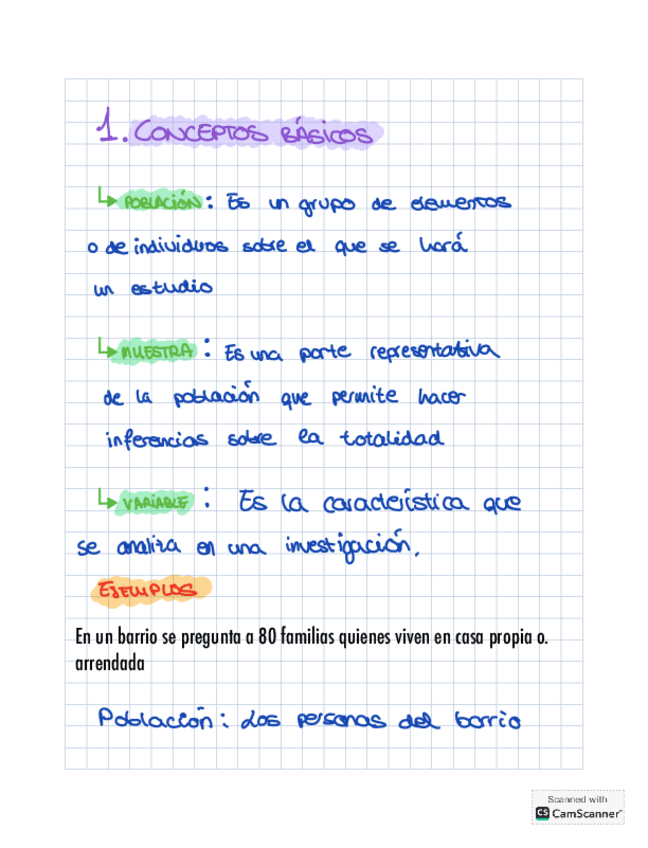 1. CONCEPTOS BÁSICOS
↳ POBLACIÓN: Es un grupo de elementos
o de individuos sobre el que se hará
un estudio
↳ MUESTRA: Es una parte representativa
de la población que permite hacer
inferencias sobre la totalidad
↳ VARIABLE: Es la característica que
se analiza en una investigación.
EJEMPLOS
En un barrio se pregunta a 80 familias quienes viven en casa propia o.
arrendada
Población: Los personas del barrio
Scanned with
CS CamScanner